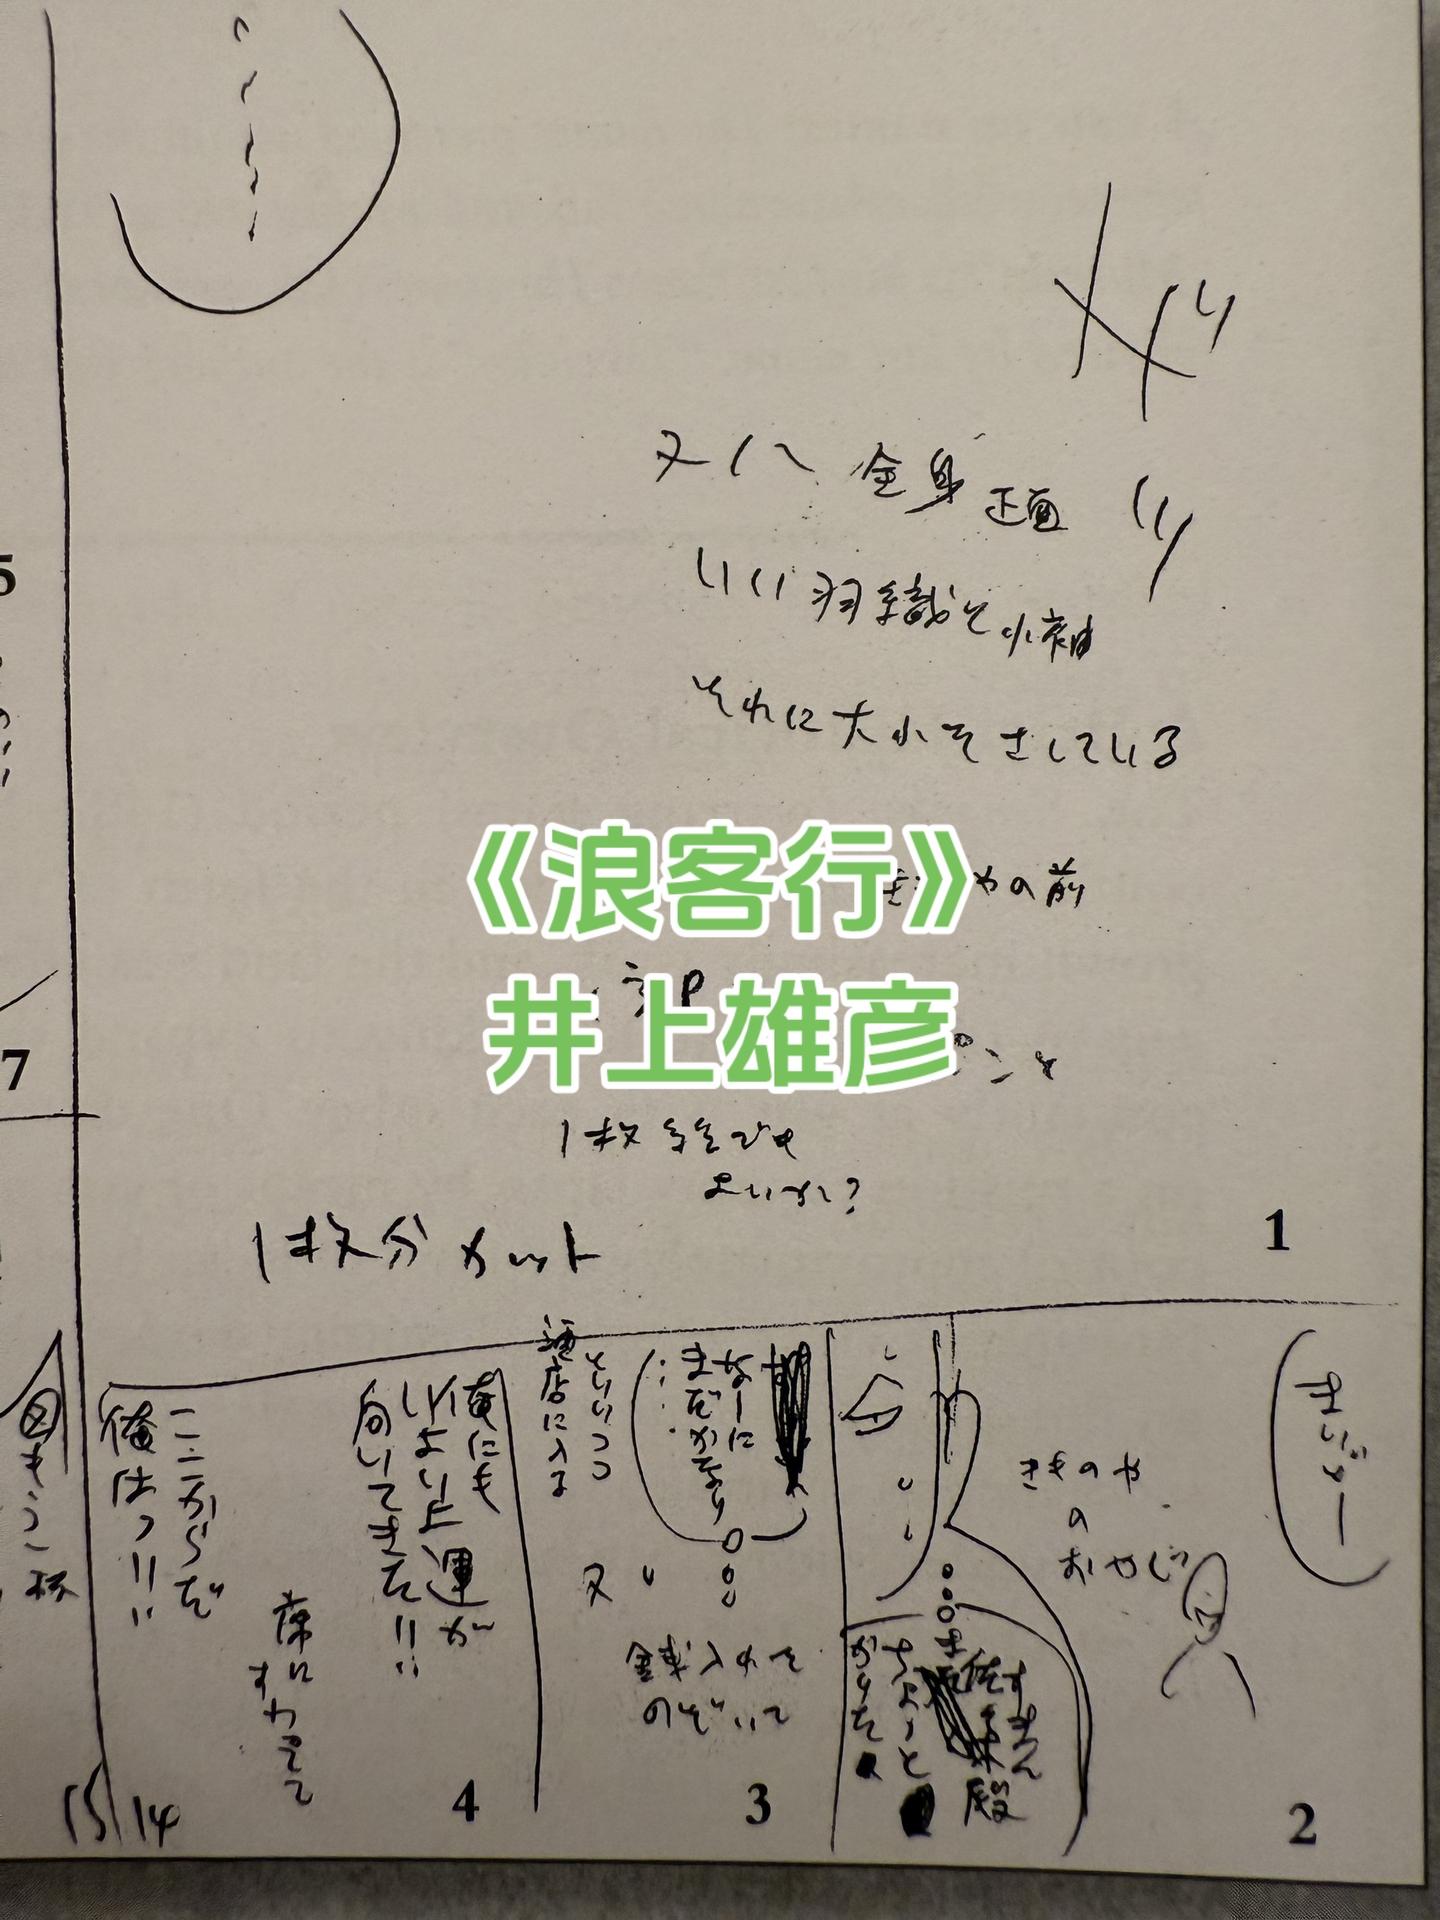 バリッ
又八 全身 正面
いい羽織と小袖
それに大小をさしている
の前
《浪客行》
井上雄彦
1枚絵でも
よいかい?
1枚分カット
1
まいどー
きものや
の
おやじ
すまん
殿
ちょーっと
かりた
2
なーに
まだかなり
といいつつ
酒店に入る
又
銭入れを
のぞいて
3
俺にも
いよいよ運が
向いてきた!!
席に
すわって
ここからだ
俺はっ!!
4
もう一杯
15
14
5
7